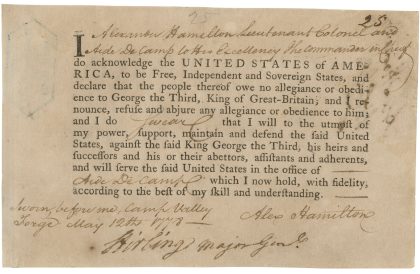 25
25
I Alexander Hamilton Lieutenant Colonel and
Aide De Camp to His Excellency The Commander in Chief
do acknowledge the UNITED STATES of AME-
RICA, to be Free, Independent and Sovereign States, and
declare that the people thereof owe no allegiance or obedi-
ence to George the Third, King of Great-Britain; and I re-
nounce, refuse and abjure any allegiance or obedience to him;
and I do Swear that I will to the utmost of
my power, support, maintain and defend the said United
States, against the said King George the Third, his heirs and
successors and his or their abettors, assistants and adherents,
and will serve the said United States in the office of
Aide De Camp which I now hold, with fidelity,
according to the best of my skill and understanding.
Sworn before me, Camp Valley
Forge May 12th 1778 Alex Hamilton
Stirling Major Genl.